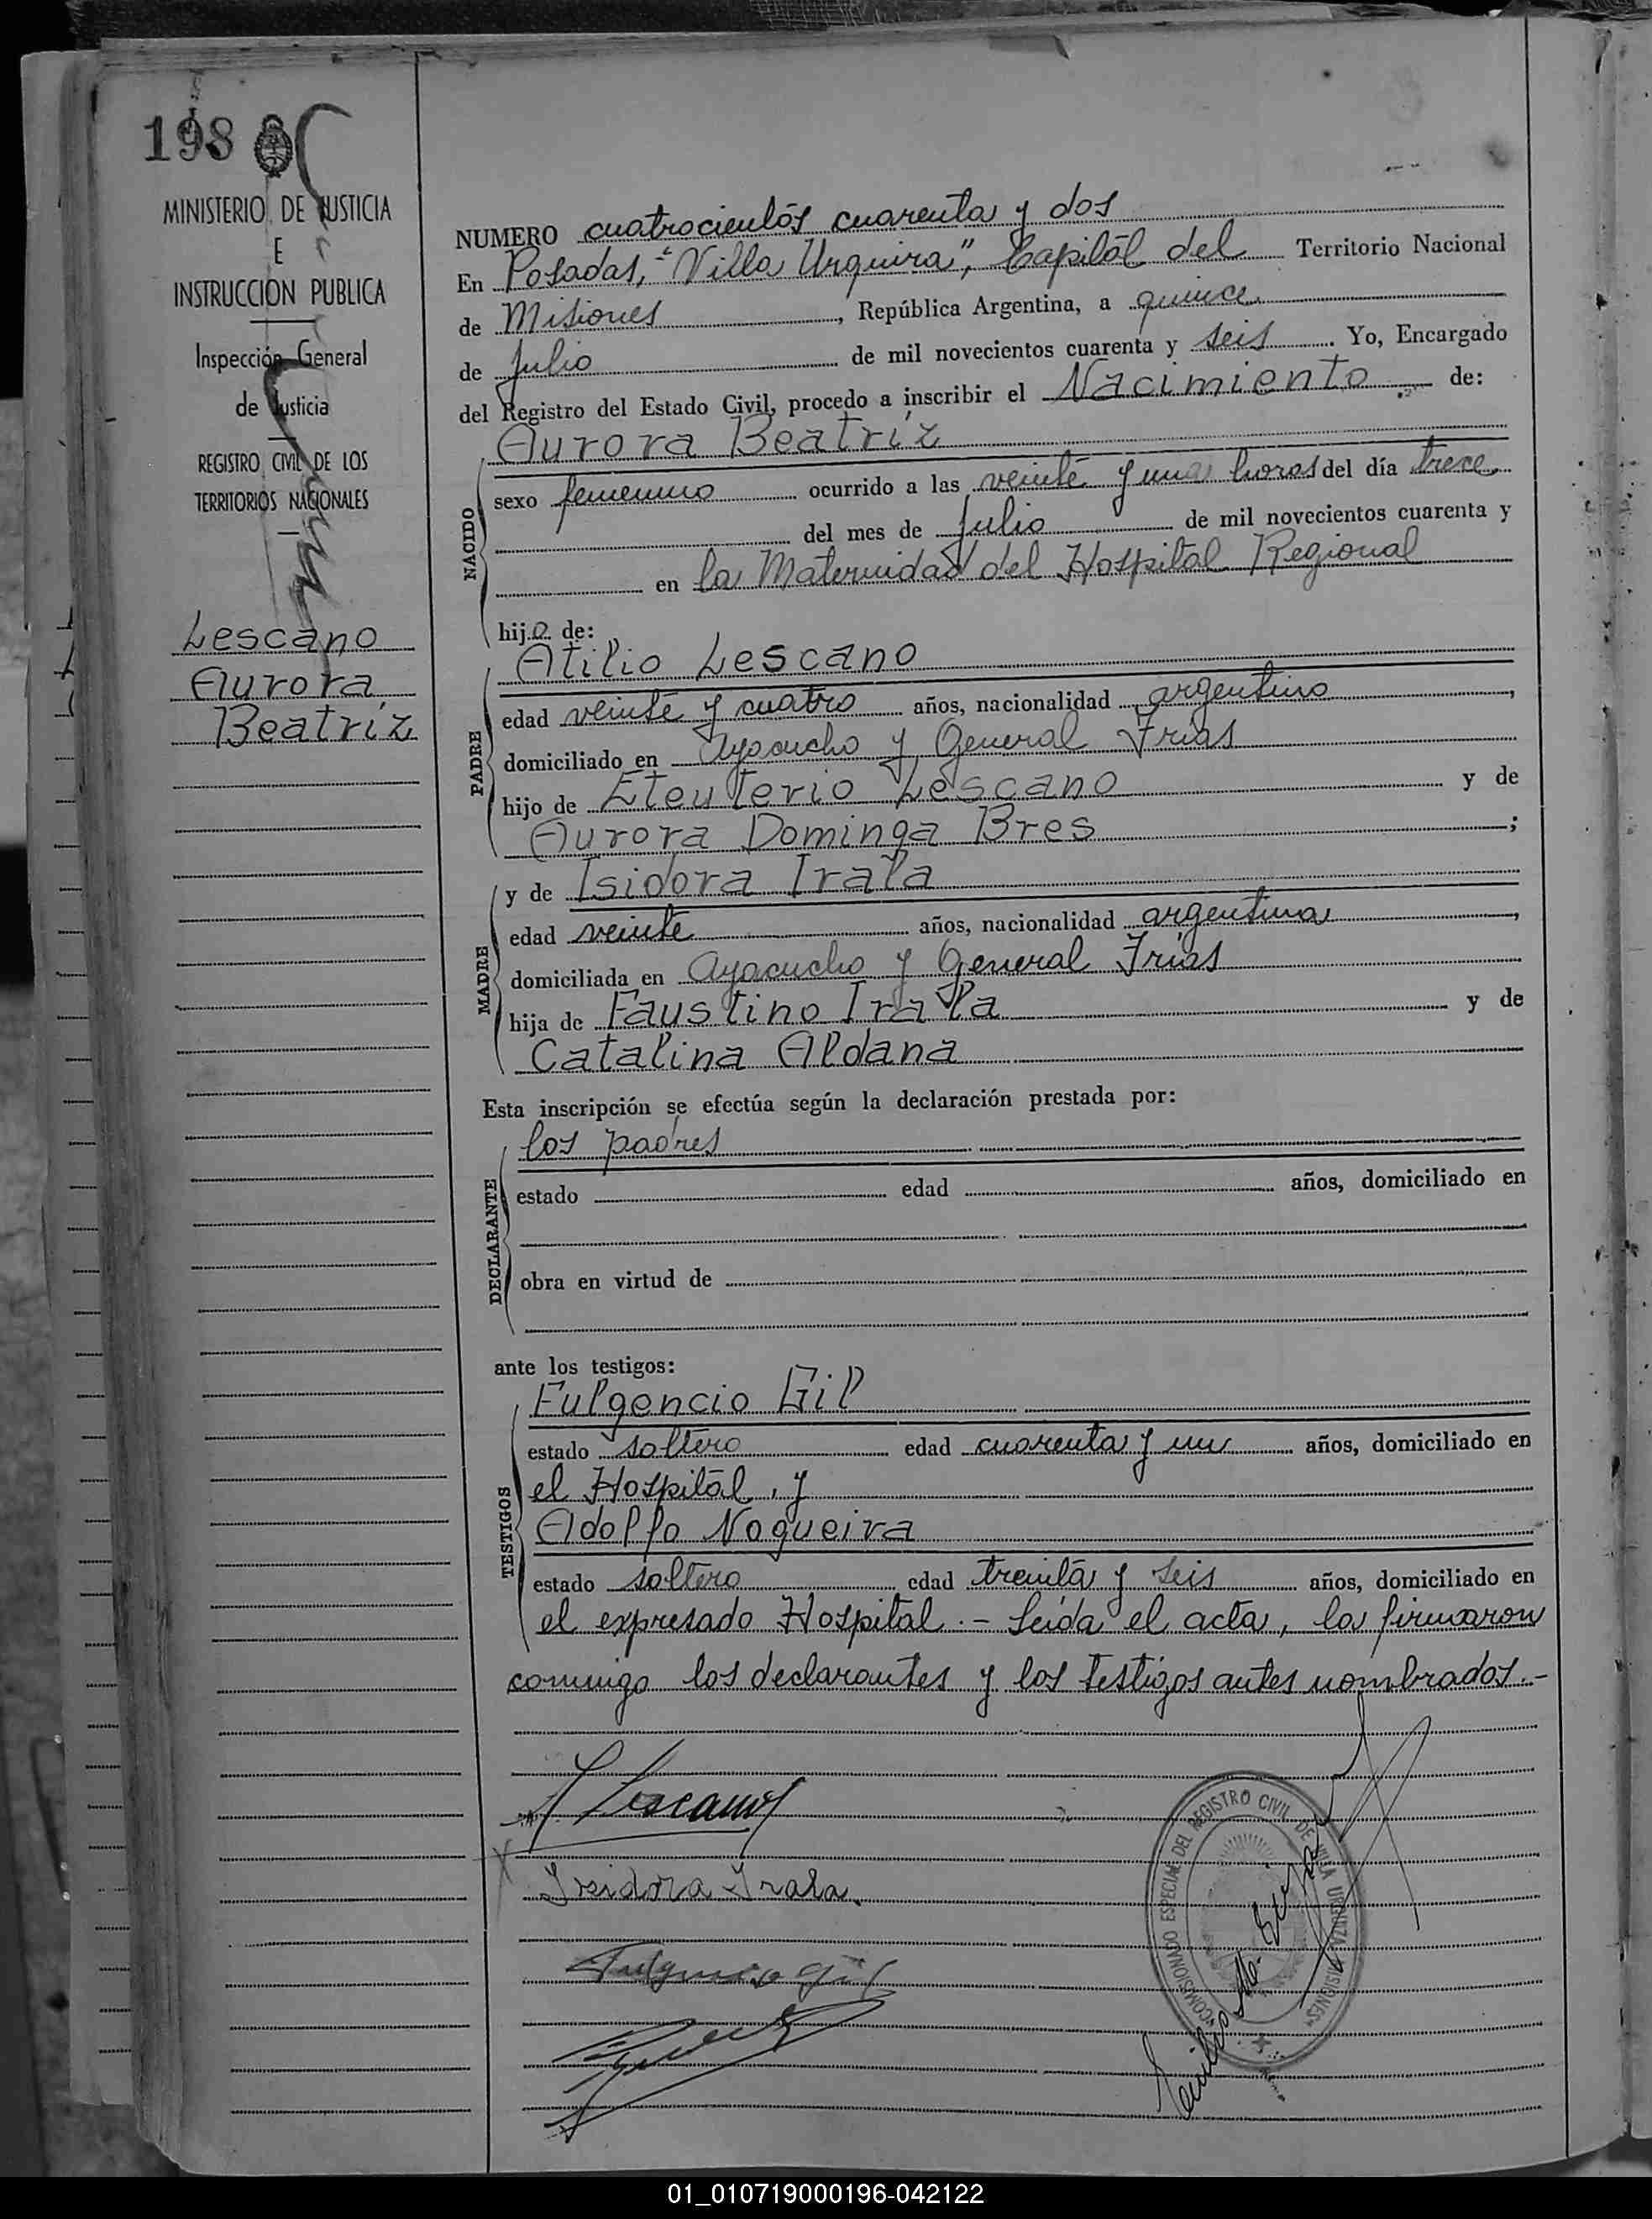 198
MINISTERIO DE JUSTICIA
E
INSTRUCCION PUBLICA
Inspección General
de Justicia
REGISTRO CIVIL DE LOS
TERRITORIOS NACIONALES
Lescano
Aurora
Beatríz
NUMERO cuatrocientos cuarenta y dos
En Posadas, "Villa Urquiza", Capital del Territorio Nacional
de Misiones, República Argentina, a quince
de Julio de mil novecientos cuarenta y seis. Yo, Encargado
del Registro del Estado Civil, procedo a inscribir el Nacimiento de:
NACIDO
Aurora Beatríz
sexo femenino ocurrido a las veinte y una horas del día trece
del mes de Julio de mil novecientos cuarenta y
en la Maternidad del Hospital Regional
hija de:
PADRE
Atilio Lescano
edad veinte y cuatro años, nacionalidad argentino,
domiciliado en Ayacucho y General Frías
hijo de Eleuterio Lescano y de
Aurora Dominga Bres;
MADRE
y de Isidora Irala
edad veinte años, nacionalidad argentina,
domiciliada en Ayacucho y General Frías
hija de Faustino Irala y de
Catalina Aldana
Esta inscripción se efectúa según la declaración prestada por:
DECLARANTE
los padres
estado edad años, domiciliado en
obra en virtud de
ante los testigos:
TESTIGOS
Fulgencio Gil
estado soltero edad cuarenta y un años, domiciliado en
el Hospital, y
Adolfo Nogueira
estado soltero edad treinta y seis años, domiciliado en
el expresado Hospital.- Leída el acta, la firmaron
conmigo los declarantes y los testigos antes nombrados.-
Lescano
Isidora Irala
Fulgencio Gil
COMISIONADO ESPECIAL DEL REGISTRO CIVIL DE VILLA URQUIZA MISIONES
01_010719000196-042122